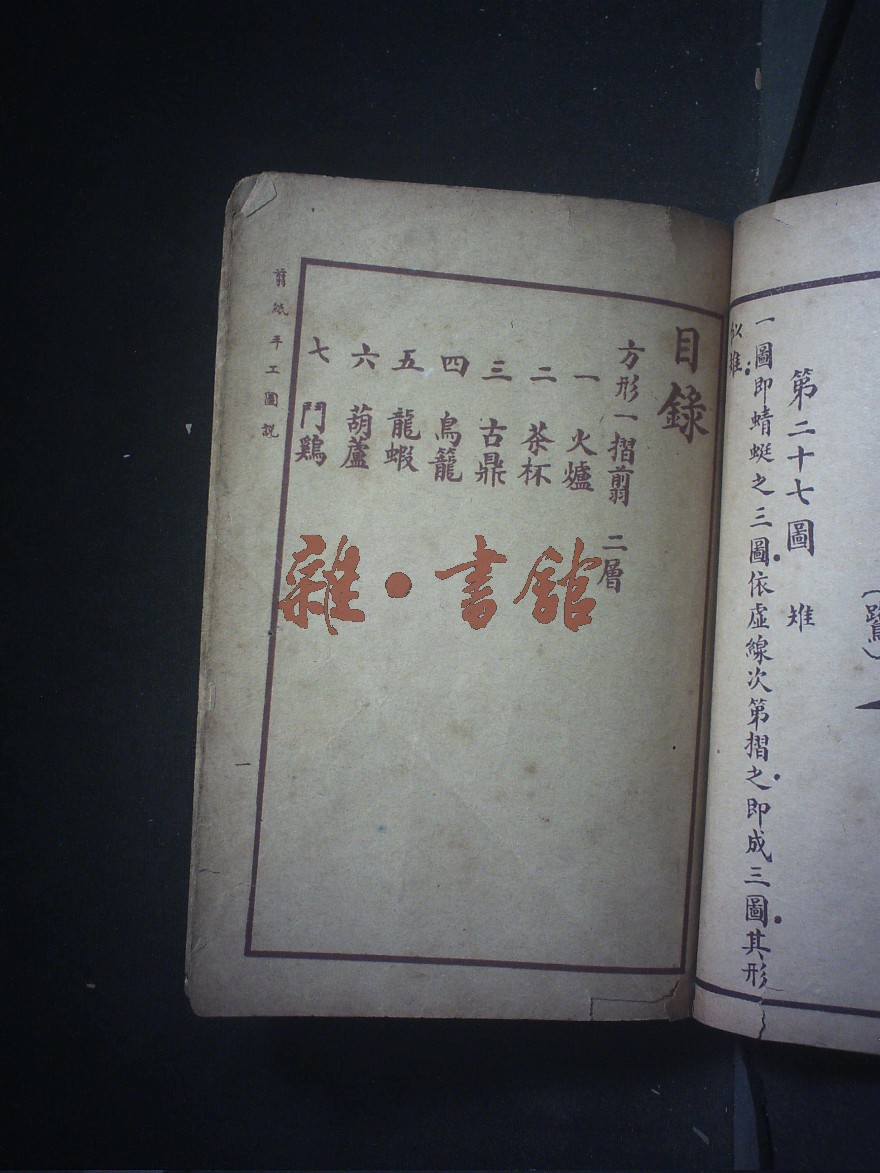 第二十七圖　雉
一圖即蜻蜓之三圖依虛線次第摺之即成三圖其形
似雉
（鷺）
目錄
方形一摺剪　二層
一　火爐
二　茶杯
三　古鼎
四　鳥籠
五　龍蝦
六　葫蘆
七　鬥鷄
剪紙手工圖說
一
雜·書館